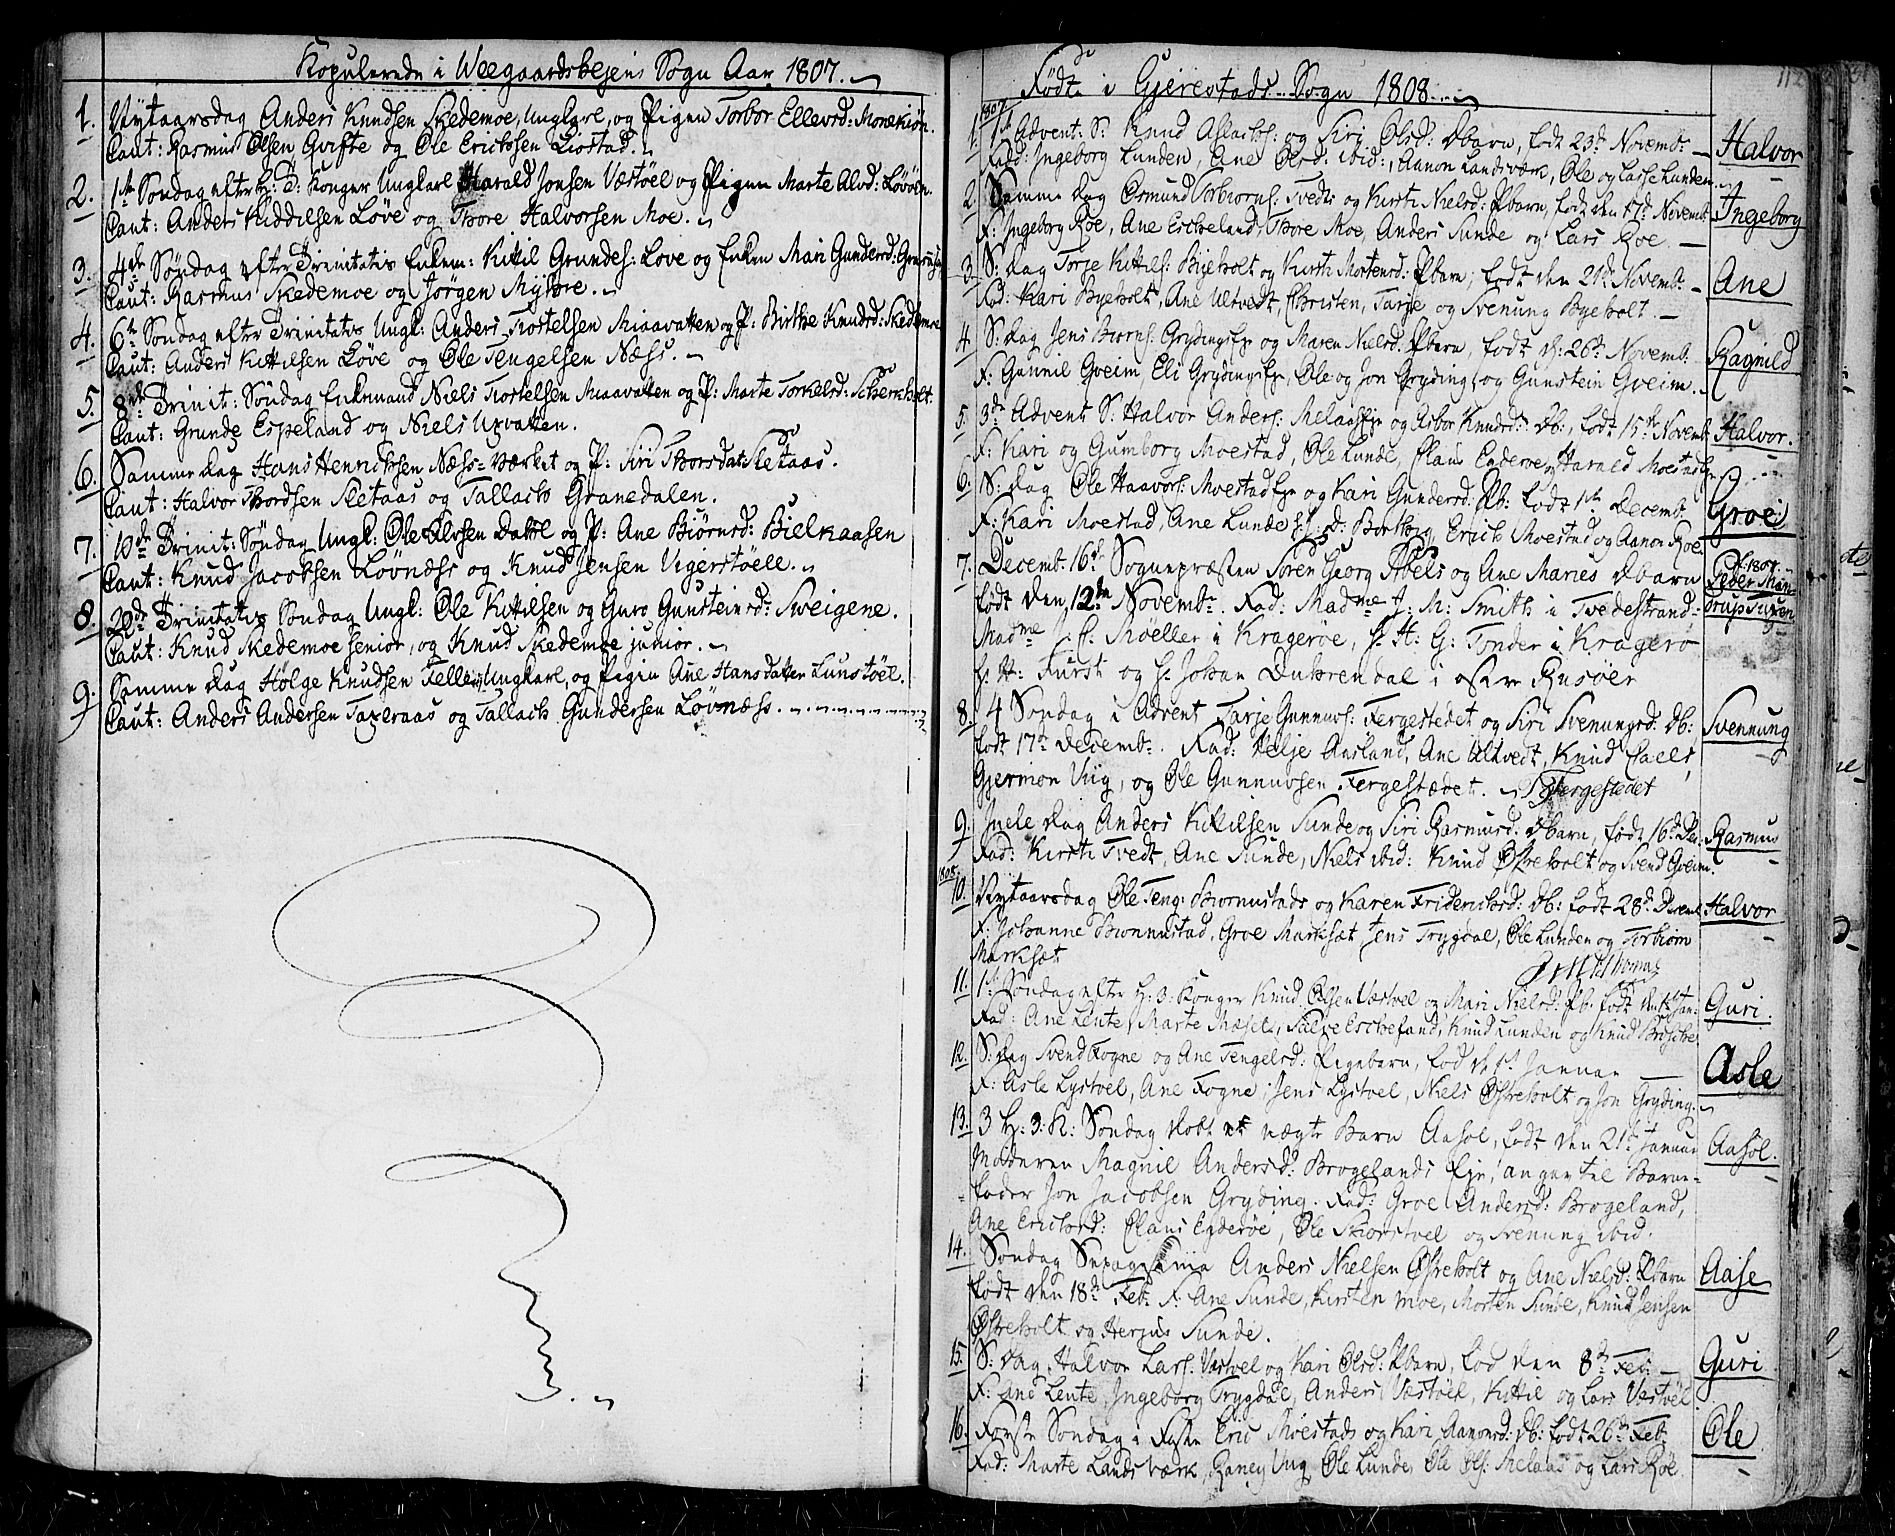 Kopulerede i Weegaardshejens Sogn Aar 1807.
1. Nytaarsdag Anders Knudsen Skedemoe, Ungkarl, og Pigen Torbor Ellevsd:
Caut: Rasmus Olsen Qvifte og Ole Erichsen Liostad.
2. 1ste Søndag efter H: 3: Konger Ungkarl Harald Jensen Væstøel og Pigen Marte Alvd:
Caut: Anders Kiddilsen Løve og Thore Halvorsen Moe.
3. 4de Søndag efter Trinitatis Enkem: Kittil Grundes: Løve og Enken Mari Gundersd:
Caut: Rasmus Skedemoe og Jørgen Myhre.
4. 6te Søndag efter Trinitatis Ungk: Anders Tostelsen Miaavatten og P: Birthe Knudsd: Skedemoe
Caut: Anders Kittilsen Løve og Ole Tengelsen Næss.
5. 8de Trinit: Søndag Enkemand Niels Tostelsen Miaavatten og P: Marte Torkelsd:
Caut: Grunde Espeland og Niels Uxvatten.
6. Samme dag Hans Henrichsen Næss-Værket og P: Siri Thorsdat: Sletaas.
Caut: Halvor Thordsen Sletaas og Tallach Granedalen.
7. 10de Trinit: Søndag Ungk: Ole Olvsen Dahl og P: Ane Biørnsd: Bielkaasen
Caut: Knud Jacobsen Løvnæss og Knud Jensen Vigerstøell.
8. 22de Trinitatis Søndag Ungk: Ole Kittilsen og Guro Gunsteinsd: Sveigene.
Caut: Knud Skedemoe senior, og Knud Skedemoe junior.
9. Samme dag Hølge Knudsen Felle, Ungkarl, og Pigen Ane Hansdatter Lunstøel.
Caut: Anders Andersen Taxeraas og Tallach Gundersen Løvnæss.
112
Født i Gjerrestads Sogn 1808.
1807
1. 1ste Advent: S: Knud Aslachs: og Siri Olsd: Dbarn, født 23de Novembr. Halvor
Fadd: Ingeborg Lunden, Ane Olsd: ibid:, Aanon Landsværk, Ole og Lasse Lunden.
2. Samme dag Osmund Torbiørns: Tvedts og Kirsti Nielsd: Pbarn, født den 17de Novembr. Ingeborg
F: Ingeborg Roe, Ane Eskeland, Thore Moe, Anders Sunde og Lars Roe.
3. S: dag Torje Kittils: Byeholt og Kirsti Mortensd: Pbarn, født den 21de Novembr. Ane
Fad: Kari Byeholt, Ane Ulvedt, Christen, Tarje og Svenung Byeholt.
4. S: dag Jens Biørns: Grydings Eje og Maren Nielsd: Pbarn, født d: 26de Novemb. Ragnild
F: Gunnil Gveim, Eli Grydings Eje, Ole og Jon Gryding, og Gunstein Gveim.
5. 3de Advent S: Halvor Anders: Melaas Eje og Asbor Knudsd: Db:, født 15de Novemb. Halvor.
F: Kari og Gumborg Moestad, Ole Lunde, Claus Egderøe, Harald Moestads Eje
6. S: dag Ole Haavors: Moestad Eje og Kari Gundersd: Pb: født 1ste Decemb. Groe
F: Kari Moestad, Ane Lunde, Erich Moestad og Aanon Roe.
7. Decemb. 16de Sognepræsten Søren Georg Abels og Ane Maries Dbarn
født den 12te Novembr. Fad: Madme J: M: Smith i Tvedestrand
Madme C. Møeller i Kragerøe, H: H: G: Tonder i Kragerø
H: H: Furst og H: Johan Duhrendal i øster Riisøer
8. 4 Søndag i Advent Tarje Gunnuvs: Fergestedet og Siri Svenungsd: Db: Svennung
født 17de Decembr. Fad: Helje Aasland, Ane Ulvedt, Knud
Gjermon Viig, og Ole Gunnuvsen Fergestædet. Fergestedet
9. Juele dag Anders Kittilsen Sunde og Siri Rasmusd: Dbarn, født 16de Dec: Rasmus
Fad: Kirsti Tvedt, Ane Sunde, Niels ibid: Knud Østreholt og Svend Gveim.
1808
10. Nytaarsdag Ole Teng: Biormustads og Karen Friderichsd: Db: født 28de Decemb. Halvor
F: Johanne Biormustad, Groe Marksæt, Jens Trygdal, Ole Lunden og Torbiørn
Marksæt
11. 1ste Søndag efter H: 3: Konger Knud Olsen Væstøel og Mari Nielsd: Pb: født den Jan: Guri.
Fad: Ane Lente, Marte Mæsel, Salve Eskeland, Knud Lunden og Knud
12. S: dag Svend Fogne og Ane Tengelsd: Pigebarn, fød d: 1ste Januar Asle
F: Asle Lystøel, Ane Fogne, Jens Lystøel, Niels Østreholt og Jon Gryding.
13. 3 H: 3: K: Søndag døbt et uægte Barn Aasol, født den 21de Januar Aasol.
Moderen Magnil Andersd: Brogelands Eje, angav til Barne-
fader Jon Jacobsen Gryding. Fad: Groe Andersd: Brogeland,
Ane Erichsd: Claus Egderøe, Ole Skiørstøel og Svenung ibid.
14. Søndag Sexagesima Anders Nielsen Østreholt og Ane Nielsd: Pbarn Aase
født den 18de Feb. F: Ane Sunde, Kirsten Moe, Morten Sunde, Knud Jensen
Østreholt og Herjus Sunde.
15. S: dag Halvor Lars: Væstøel og Kari Olsd: Pbarn, fød den 8de Feb. Guri
F: Ane Lente, Ingeborg Trygdal, Anders Væstøel, Kittil og Lars Væstøel
16. Første Søndag i Faste Eric Moestads og Kari Aanonsd: Db: født 26de Feb. Ole
Fad: Marte Landsværk, Raney Viig, Ole Lunde, Ole Ols: Melaas og Lars Roe.